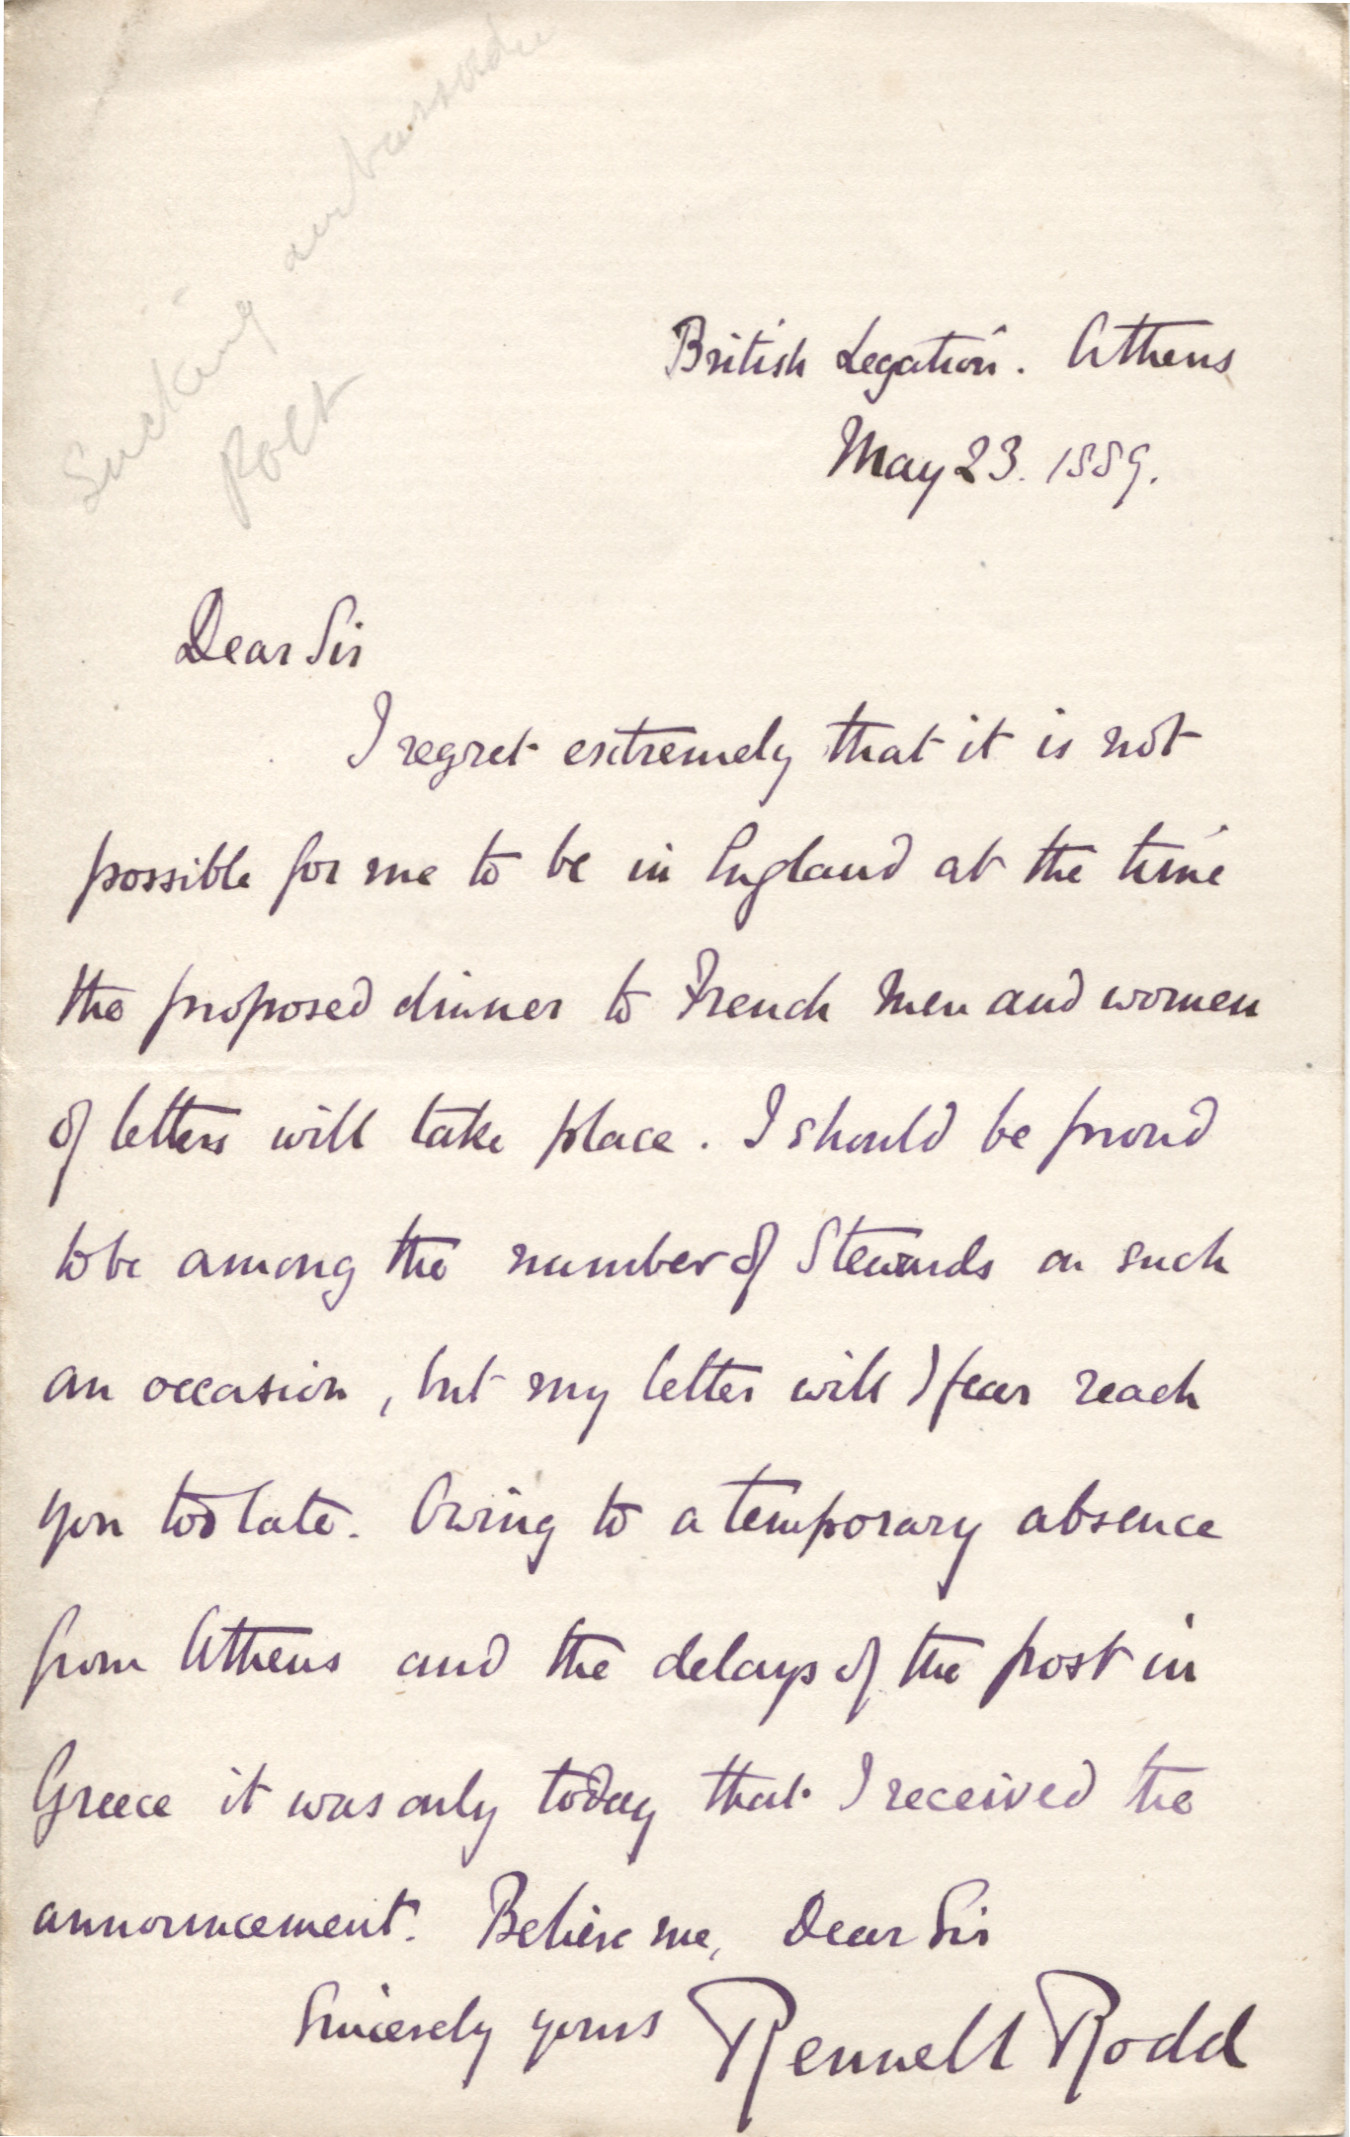 Sucking ambassador
Poet
British Legation. Athens
May 23. 1889.
Dear Sir
I regret extremely that it is not
possible for me to be in England at the time
the proposed dinner to French men and women
of letters will take place. I should be proud
to be among the number of Stewards on such
an occasion, but my letter will I fear reach
you too late. Owing to a temporary absence
from Athens and the delays of the post in
Greece it was only today that I received the
announcement. Believe me, Dear Sir
Sincerely yours Rennell Rodd